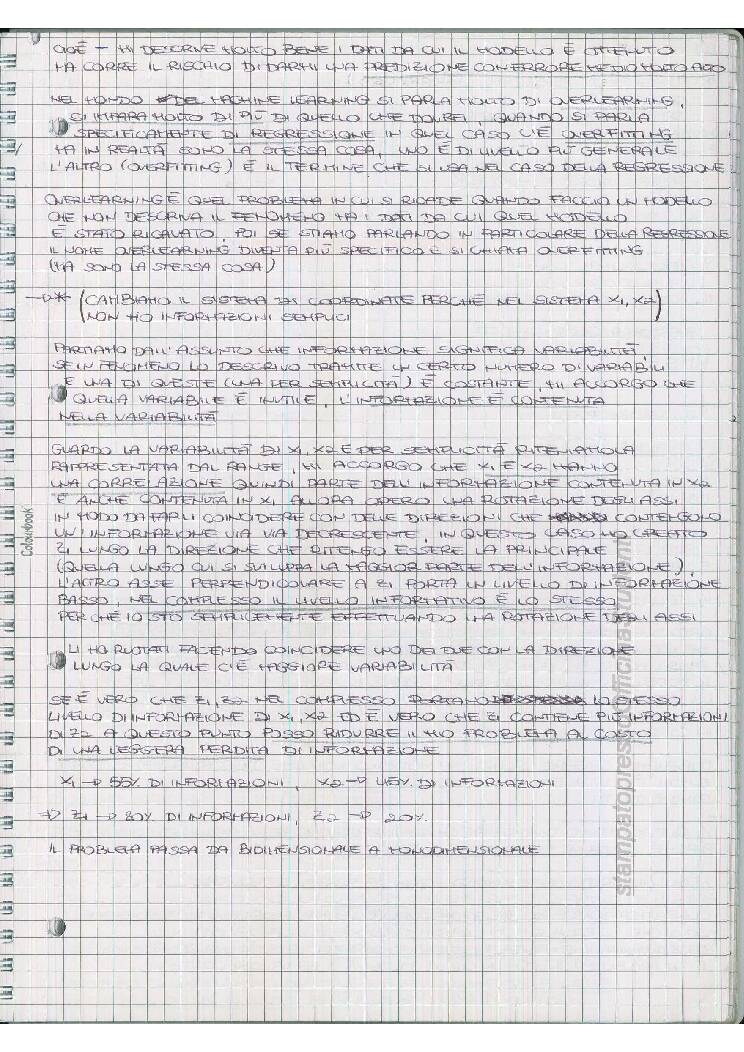 CIOÈ – MI DESCRIVE MOLTO BENE I DATI DA CUI IL MODELLO È OTTENUTO
MA CORRE IL RISCHIO DI DARMI UNA PREDIZIONE CON ERRORE MEDIO MOLTO ALTO
NEL MONDO DEL MACHINE LEARNING SI PARLA MOLTO DI OVERLEARNING,
SI IMPARA MOLTO DI PIÙ DI QUELLO CHE DOVREI, QUANDO SI PARLA
SPECIFICAMENTE DI REGRESSIONE IN QUEL CASO C'È OVERFITTING
MA IN REALTÀ SONO LA STESSA COSA, UNO È DI LIVELLO PIÙ GENERALE
L'ALTRO (OVERFITTING) È IL TERMINE CHE SI USA NEL CASO DELLA REGRESSIONE
OVERLEARNING È QUEL PROBLEMA IN CUI SI RICADE QUANDO FACCIO UN MODELLO
CHE NON DESCRIVA IL FENOMENO MA I DATI DA CUI QUEL MODELLO
È STATO RICAVATO, POI SE STIAMO PARLANDO IN PARTICOLARE DELLA REGRESSIONE
IL NOME OVERLEARNING DIVENTA PIÙ SPECIFICO E SI CHIAMA OVERFITTING
(MA SONO LA STESSA COSA)
→ * (CAMBIAMO IL SISTEMA DI COORDINATE PERCHÈ NEL SISTEMA X1, X2
NON HO INFORMAZIONI SEMPLICI)
PARTIAMO DALL'ASSUNTO CHE INFORMAZIONE SIGNIFICA VARIABILITÀ,
SE UN FENOMENO LO DESCRIVO TRAMITE UN CERTO NUMERO DI VARIABILI
E UNA DI QUESTE (UNA PER SEMPLICITÀ) È COSTANTE, MI ACCORGO CHE
QUELLA VARIABILE È INUTILE, L'INFORMAZIONE È CONTENUTA
NELLA VARIABILITÀ
GUARDO LA VARIABILITÀ DI X1, X2 E PER SEMPLICITÀ RITENIAMOLA
RAPPRESENTATA DAL RANGE, MI ACCORGO CHE X1 E X2 HANNO
UNA CORRELAZIONE QUINDI PARTE DELL'INFORMAZIONE CONTENUTA IN X2
È ANCHE CONTENUTA IN X1 ALLORA OPERO UNA ROTAZIONE DEGLI ASSI
IN MODO DA FARLI COINCIDERE CON DELLE DIREZIONI CHE CONTENGONO
UN'INFORMAZIONE VIA VIA DECRESCENTE, IN QUESTO CASO HO CREATO
Z1 LUNGO LA DIREZIONE CHE RITENGO ESSERE LA PRINCIPALE
(QUELLA LUNGO CUI SI SVILUPPA LA MAGGIOR PARTE DELL'INFORMAZIONE),
L'ALTRO ASSE PERPENDICOLARE A Z1 PORTA UN LIVELLO DI INFORMAZIONE
BASSO, NEL COMPLESSO IL LIVELLO INFORMATIVO È LO STESSO
PERCHÈ IO STO SEMPLICEMENTE EFFETTUANDO UNA ROTAZIONE DEGLI ASSI
LI HO RUOTATI FACENDO COINCIDERE UNO DEI DUE CON LA DIREZIONE
LUNGO LA QUALE C'È MAGGIORE VARIABILITÀ
SE È VERO CHE Z1, Z2 NEL COMPLESSO PORTANO LO STESSO
LIVELLO DI INFORMAZIONE DI X1, X2 ED È VERO CHE Z1 CONTIENE PIÙ INFORMAZIONI
DI Z2 A QUESTO PUNTO POSSO RIDURRE IL MIO PROBLEMA AL COSTO
DI UNA LEGGERA PERDITA DI INFORMAZIONE
X1 → 55% DI INFORMAZIONI, X2 → 45% DI INFORMAZIONI
⇒ Z1 → 80% DI INFORMAZIONI, Z2 → 20%
IL PROBLEMA PASSA DA BIDIMENSIONALE A MONODIMENSIONALE
Colourbook